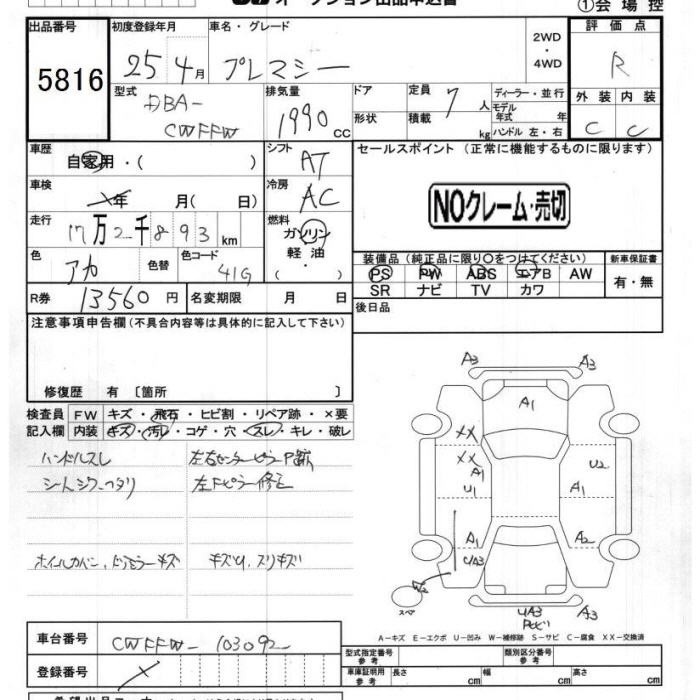 オークション出品申込書
①会場控
出品番号
5816
初度登録年月
25 4月
車名・グレード
プレマシー
2WD
・
4WD
評価点
R
外装 内装
C C
型式
DBA-
CWFFW
排気量
1990 cc
ドア
形状
定員 7人
積載 kg
ディーラー・並行
モデル年式 年
ハンドル 左・右
車歴
自家用・( )
シフト
AT
車検
年 月( 日)
冷房
AC
走行
17万2千893 km
燃料
ガソリン
軽油
・( )
色
アカ
色替
色コード
41G
R券 13560円
名変期限 月 日
セールスポイント (正常に機能するものに限ります)
NOクレーム・売切
装備品(純正品に限り〇をつけてください)
PS PW ABS エアB AW
SR ナビ TV カワ
新車保証書
有・無
後日品
注意事項申告欄(不具合内容等は具体的に記入して下さい)
修復歴 有 〔箇所 〕
検査員 FW キズ・飛石・ヒビ割・リペア跡・×要
記入欄 内装 キズ・汚レ・コゲ・穴・スレ・キレ・破レ
ハンドルスレ
シートシワ ヘタリ
左右センターピラーP鈑
左Fピラー修正
ホイールカバー、ドアミラーキズ
キズ大小、スリキズ
A3 A3
A1
XX
XX
A1
U2
U1
A1
A1
A2
U/A3
A2
スペ
UA3
A3
A－キズ E－エクボ U－凹み W－補修跡 S－サビ C－腐食 XX－交換済
車台番号
CWFFW-103092
登録番号
型式指定番号
参考
類別区分番号
参考
車庫証明用
参考
長さ cm
幅 cm
高さ cm